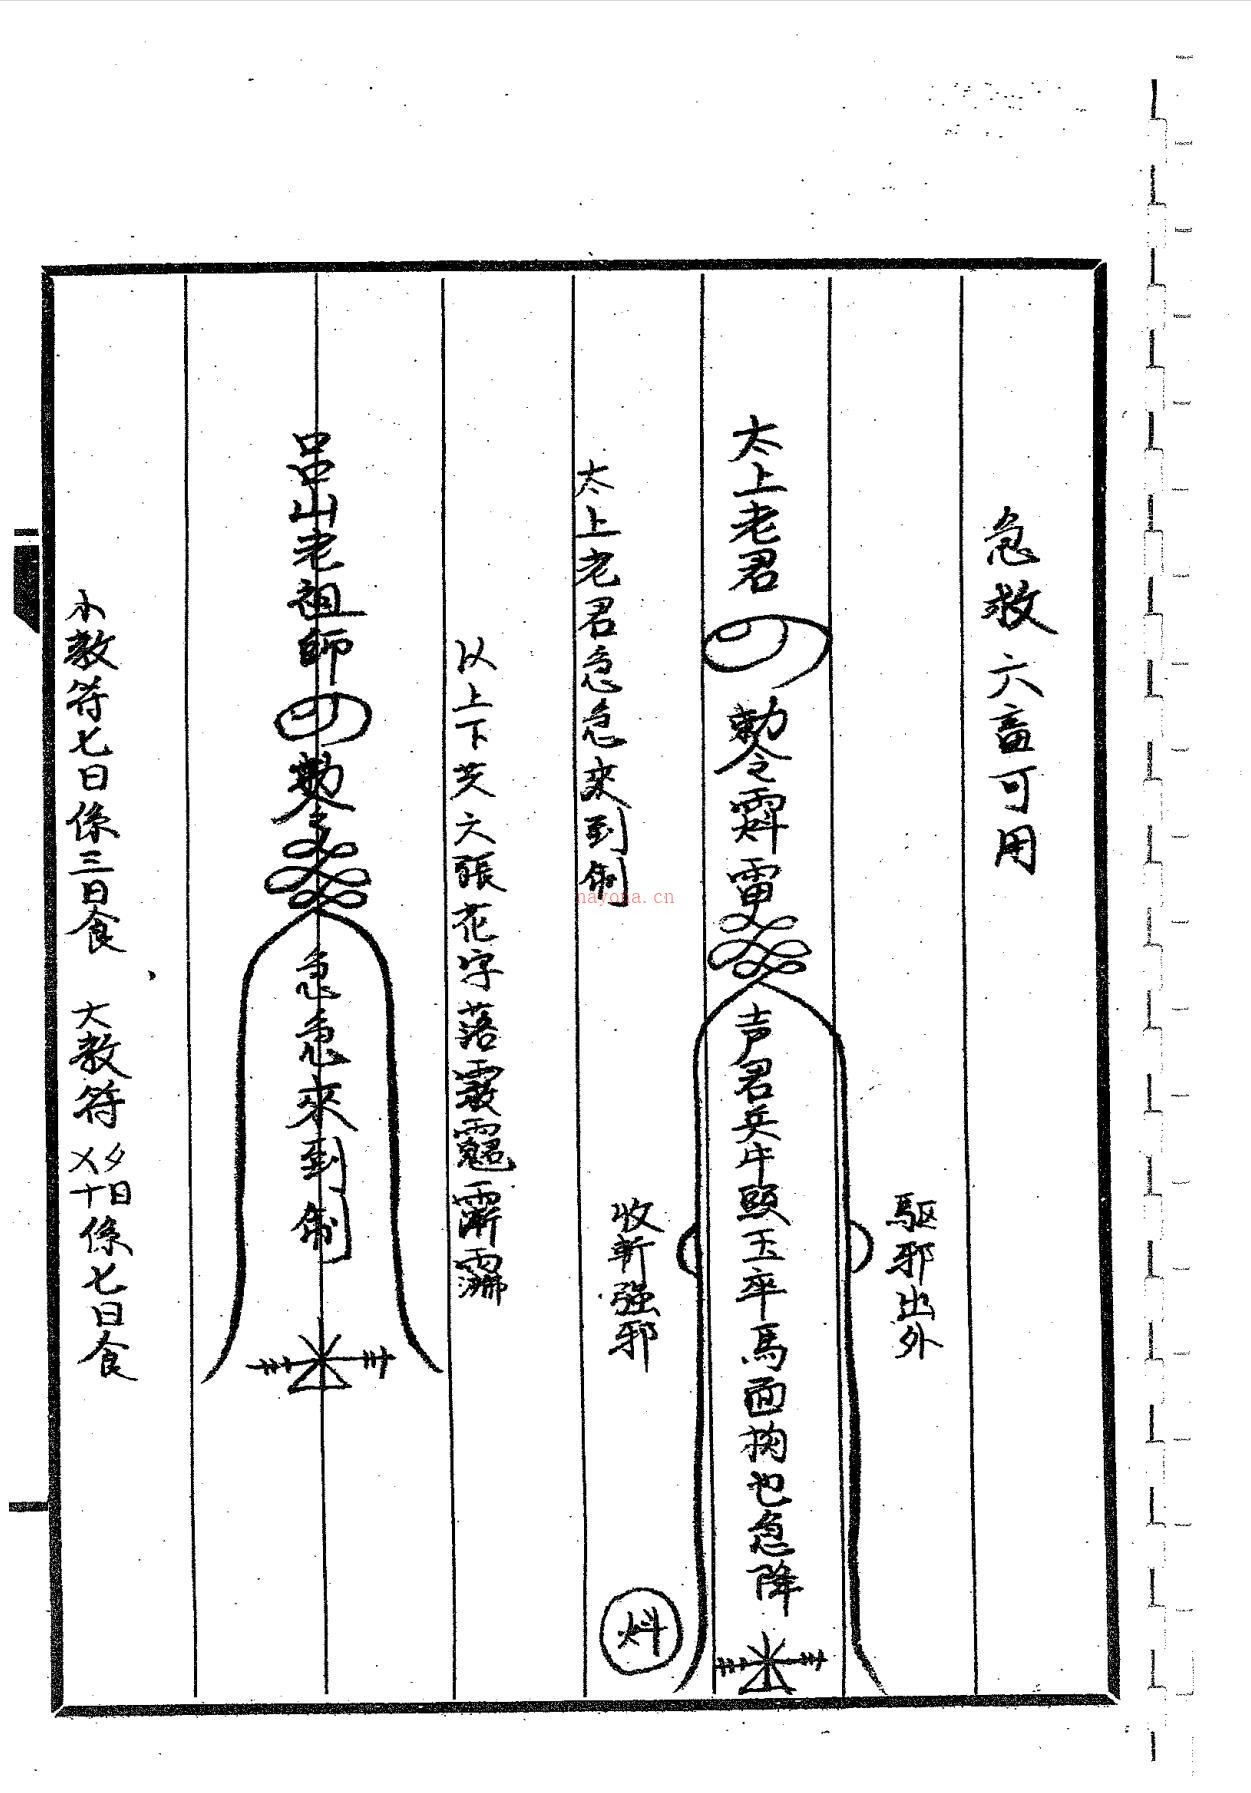 急救六畜可用
驅邪出外
太上老君 勅令 雷
声君兵牛頭玉卒馬面拘也急降
收斬强邪
太上老君急急來到制
以上下共六張花字落
呂山老祖師 勅令
急急來到制
小教符七日係三日食 大教符 十日係七日食
nayona.cn